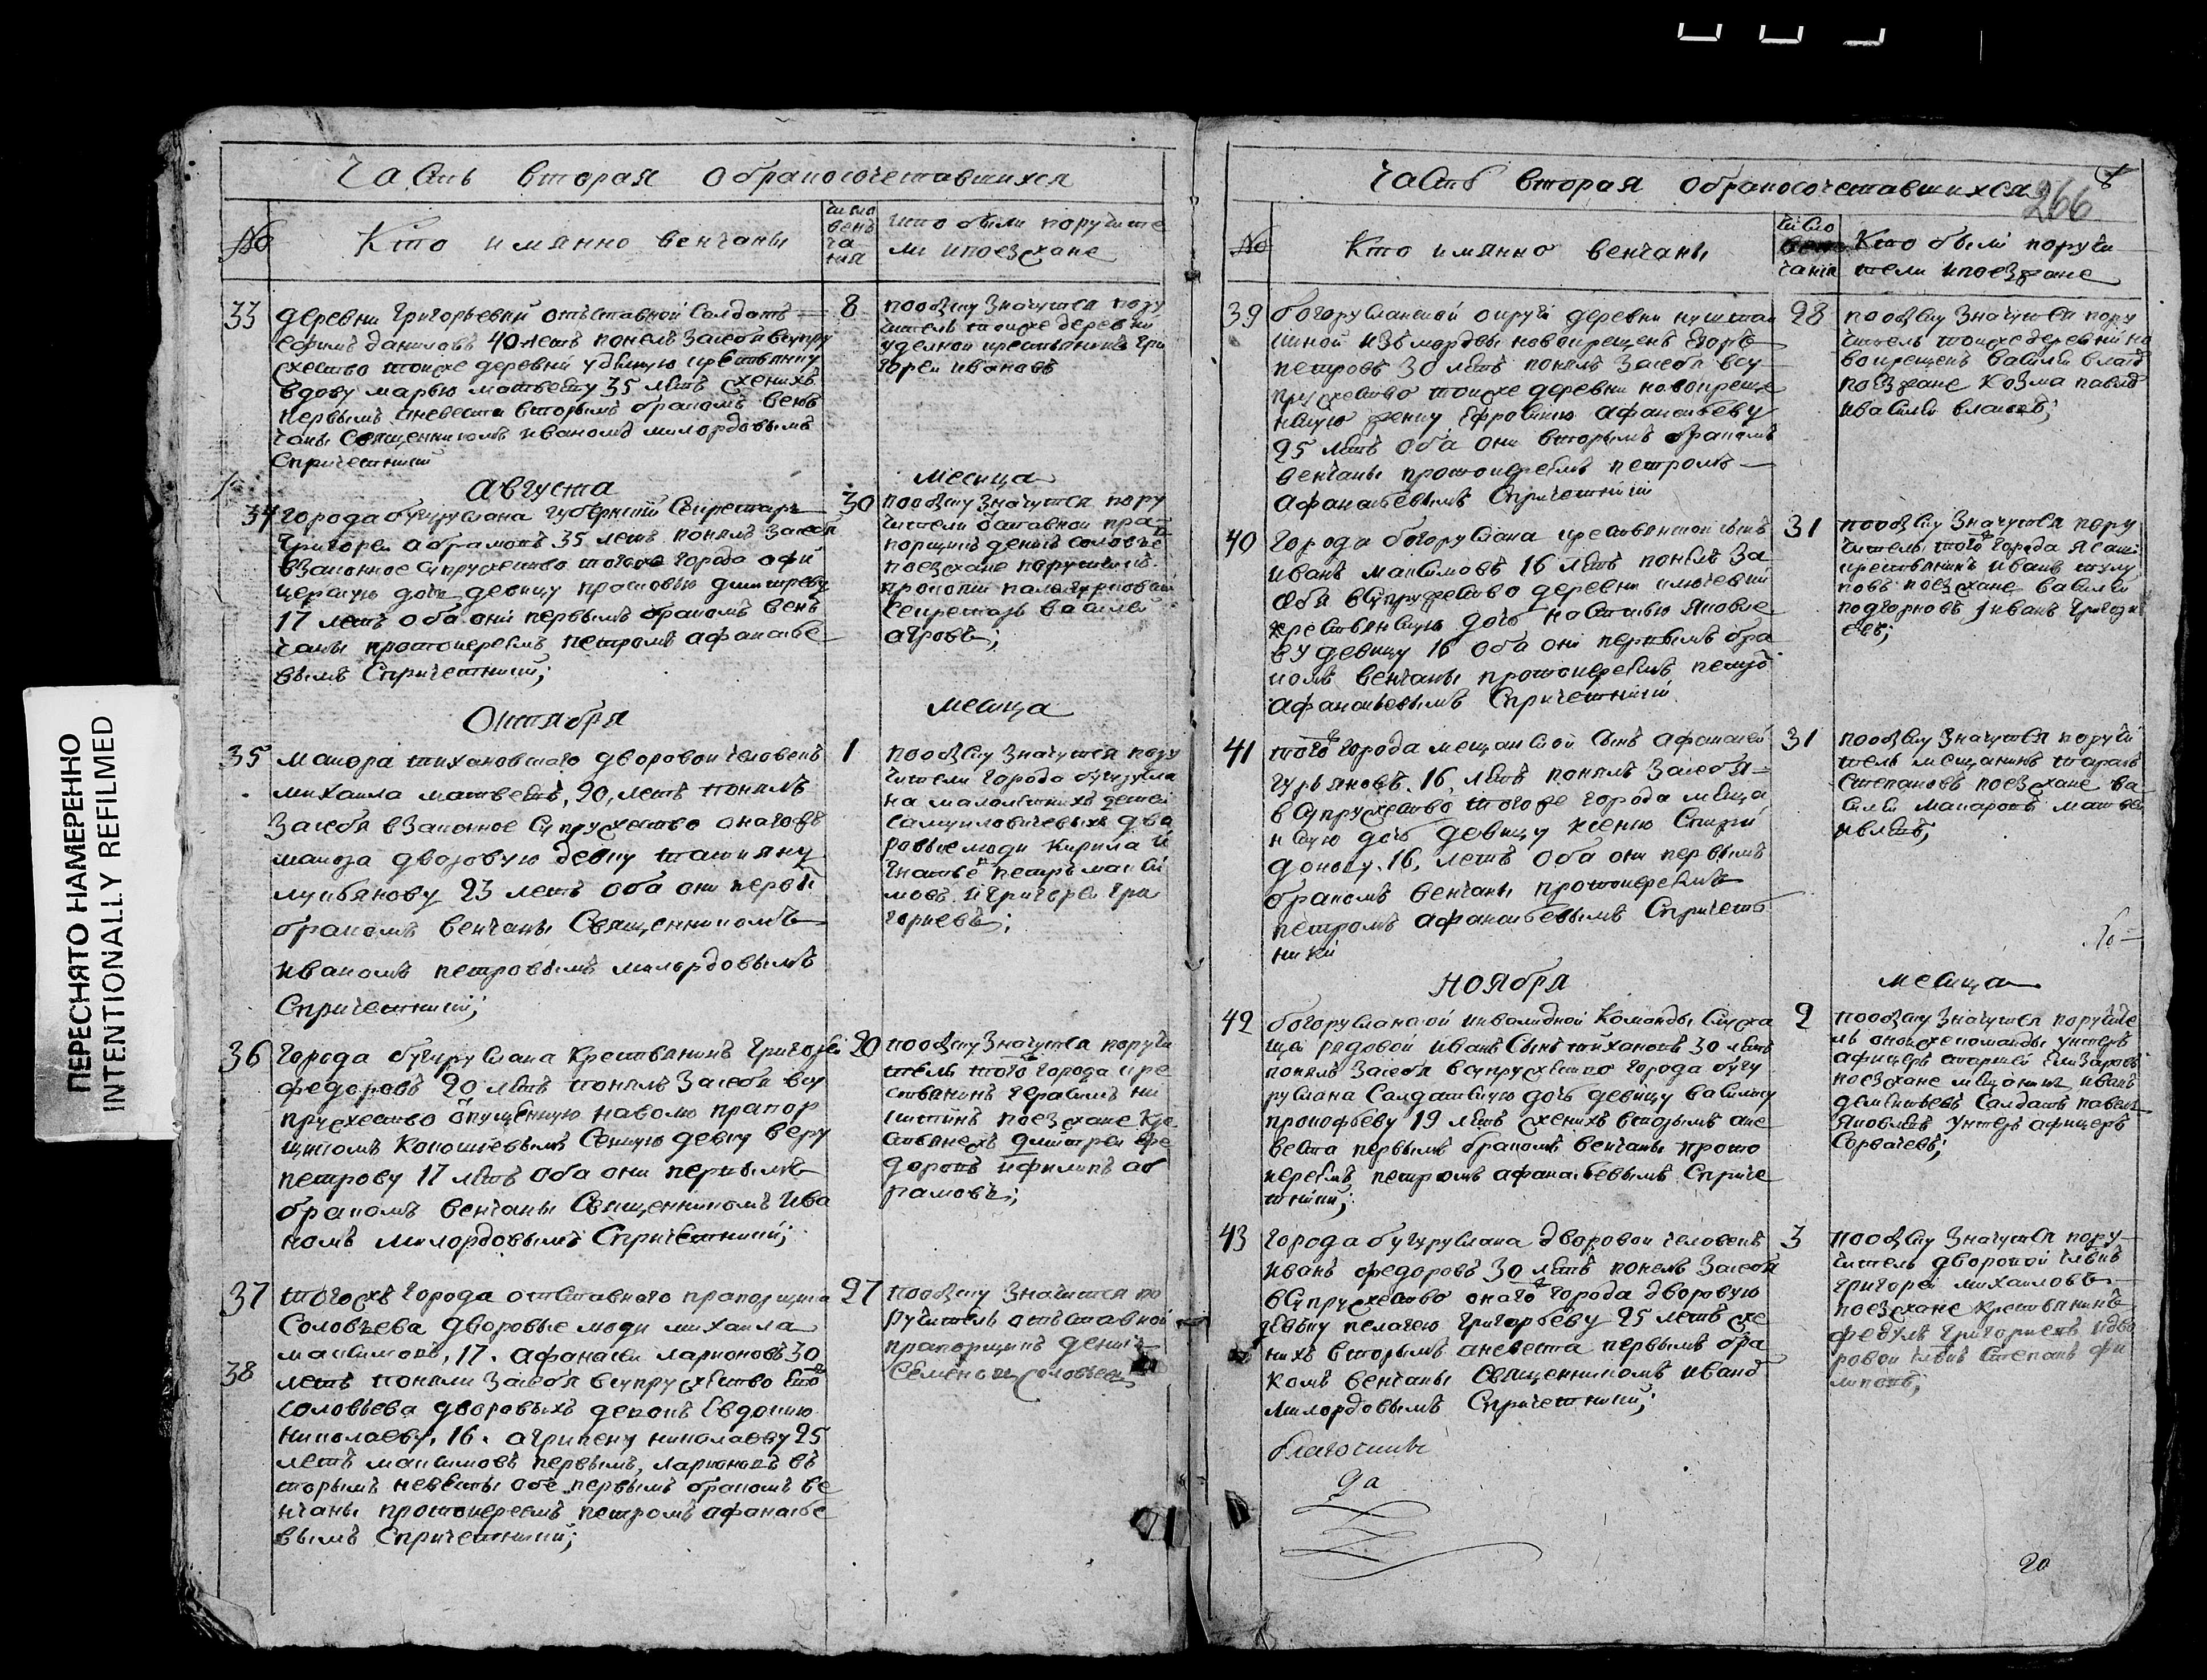 ПЕРЕСНЯТО НАМЕРЕННО
INTENTIONALLY REFILMED
Часть вторая обракосочетавшихся
№
Кто имянно венчаны
число
венъ
ча
ния
кто были поручите
ли ипоезжане
33
деревни Григорьевки отъставной Салдатъ
ефимъ даниловъ 40 летъ понелъ Засебя всупру
жество тоиже деревни удельную крестьянку
вдову марью матвееву 35 летъ женихъ
первымъ аневеста вторымъ бракомъ венъ
чаны Священникомъ иваномъ милордовымъ
Спричетники
8
пообыску Значутся пору
читель тоиже деревни
уделной крестьянинъ гри
горей ивановъ
Августа
месица
34
города бугуруслана губернский Секретарь
Григорей абрамовъ 35 летъ понялъ Засебя
взаконное супружество тогоже города офи
церскую дочь девицу прасковью дмитреву
17 летъ оба они первымъ бракомъ венъ
чаны протоиереемъ петромъ афанасье
вымъ Спричетники;
30
пообыску Значутся пору
чители отставной пра
порщикъ денисъ соловье
поезжане
прокопий
Секретарь васили
Октября
месица
35
маиора тихановскаго дворовои человекъ
михаила матвеевъ, 20, летъ понялъ
Засебя взаконное Супружество онагожъ
маиора дворовую девку татияну
лукьянову 23 летъ оба они первы
бракомъ венчаны Священникомъ
иваномъ петровымъ милордовымъ
Спричетники;
1
пообыску Значутся пору
чители города бугурусла
на малолетнихъ детей
самуиловичевыхъ дво
ровые люди кирила И
гнатьевъ петръ макси
мовъ и Григорей гри
горьевъ;
36
города бугуруслана Крестьянинъ Григорей
федоровъ 20 летъ понялъ Засебя всу
пружество опущенную наволю прапор
щикомъ девку веру
петрову 17 летъ оба они первымъ
бракомъ венчаны Священникомъ ива
номъ милордовымъ Спричетники;
20
пообыску Значутся поручи
тель того города кре
стьянинъ герасимъ ни
китинъ поезжане кре
стьянехъ дмитрей фе
доровъ ифилипъ аб
рамовъ;
37
38
тогожъ города отставнаго прапорщика
Соловьева дворовые люди михаила
максимовъ, 17. афанасеи ларионовъ 30
летъ поняли Засебя всупружество Его
соловьева дворовыхъ девокъ Евдокию
николаеву, 16. агрипену николаеву 25
летъ максимовъ первымъ, ларионовъ въ
торымъ невесты обе первымъ бракомъ ве
нчаны протоиереемъ петромъ афанасье
вымъ Спричетники;
27
пообыску Значится по
ручитель отъставной
прапорщикъ денисъ
семеновъ соловьевъ
Часть вторая обракосочетавшихся
8
266
№
Кто имянно венчаны
число
чания
Кто были поручи
тели ипоезжане
39
богорусланской округи деревни
изъ мордвы новокрещенъ Егоръ
петровъ 30 летъ понялъ Засебя всу
пружество тоиже деревни новокреще
ную женку Ефросинию афанасьеву
25 летъ оба они вторымъ бракомъ
венчаны протоиереемъ петромъ
афанасьевымъ Спричетники
28
пообыску Значутся пору
читель тоиже деревни но
вокрещенъ василеи власо
поезжане козма павло
ивасилеи власовъ;
40
Города богоруслана крестьянской сынъ
иванъ максимовъ 16 летъ понялъ За
себя всупружество деревни ключевки
крестьянскую дочь настасью яковле
ву девицу 16 оба они первымъ бра
комъ венчаны протоиереемъ петро
афанасьевымъ Спричетники
31
пообыску Значутся пору
читель того города
крестьянинъ иванъ тулу
повъ поезжане василеи
подгорновъ Iиванъ григорь
евъ;
41
того города мещанской сынъ афанасей
гурьяновъ. 16, летъ понялъ Засебя
всупружество тогоже города меща
нскую дочь девицу ксению Спири
донову. 16, летъ оба они первымъ
бракомъ венчаны протоиереемъ
петромъ афанасьевымъ Спричетъ
ники
31
пообыску Значутся поручи
тель мещанинъ тарасъ
степановъ поезжане ва
силеи макаровъ матвеи
ивлевъ;
Ноября
месица
42
богорусланской инвалидной Команды Служа
щей рядовой иванъ Сынъ тихановъ 30 летъ
понялъ Засебя всупружество города бугу
руслана Салдатскую дочь девицу василису
прокофьеву 19 летъ женихъ вторымъ ане
веста первымъ бракомъ венчаны прото
иереемъ петромъ афанасьевымъ Сприче
тники;
2
пообыску Значутся поручите
ль оноиже команды унтеръ
афицеръ старшей Елизаровъ
поезжане мещанинъ иванъ
дементьевъ Салдатъ павелъ
яковлевъ унтеръ афицеръ
Сорвачевъ;
43
города бугуруслана дворовои человекъ
иванъ федоровъ 30 летъ понелъ Засебя
всупружество онаго города дворовую
девку пелагею григорьеву 25 летъ же
нихъ вторымъ аневеста первымъ бра
комъ венчаны Священникомъ ивано
милордовымъ Спричетники;
3
пообыску Значутся пору
читель дворовой члвкъ
григорей михаиловъ
поезжане крестьянинъ
федулъ григорьевъ идво
ровои члвкъ степанъ фи
липовъ;
20